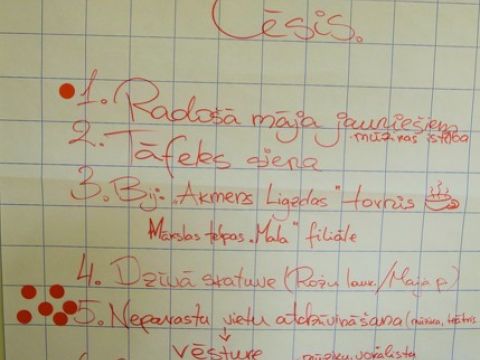 Cēsis.
1. Radošā māja jauniešiem
mūzikas istaba
2. Tāfeles siena
3. Bij. "Akmens Ligzdas" tornis
Mākslas telpas "Mala" filiāle
4. Dzīvā skatuve (Rožu lauk./Maija p.)
5. Neparastu vietu atdzīvināšana (mūzika, teātris
vēsture mūziku, vokālista